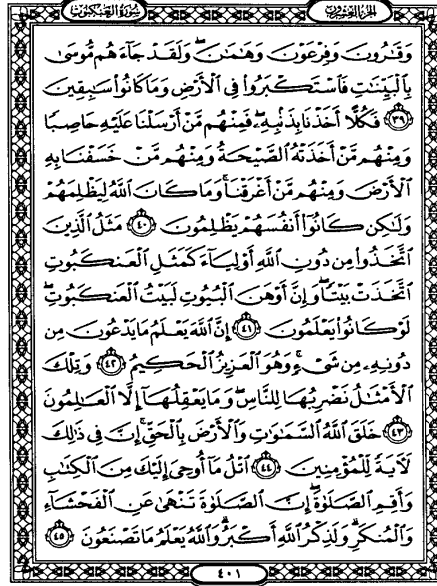 سورة العنكبوت
الجزء العشرون
وَقَٰرُونَ وَفِرْعَوْنَ وَهَٰمَٰنَۖ وَلَقَدْ جَآءَهُم مُّوسَىٰ
بِٱلْبَيِّنَٰتِ فَٱسْتَكْبَرُوا۟ فِى ٱلْأَرْضِ وَمَا كَانُوا۟ سَٰبِقِينَ
٣٩ فَكُلًّا أَخَذْنَا بِذَنۢبِهِۦۖ فَمِنْهُم مَّنْ أَرْسَلْنَا عَلَيْهِ حَاصِبًا
وَمِنْهُم مَّنْ أَخَذَتْهُ ٱلصَّيْحَةُ وَمِنْهُم مَّنْ خَسَفْنَا بِهِ
ٱلْأَرْضَ وَمِنْهُم مَّنْ أَغْرَقْنَاۚ وَمَا كَانَ ٱللَّهُ لِيَظْلِمَهُمْ
وَلَٰكِن كَانُوٓا۟ أَنفُسَهُمْ يَظْلِمُونَ ٤٠ مَثَلُ ٱلَّذِينَ
ٱتَّخَذُوا۟ مِن دُونِ ٱللَّهِ أَوْلِيَآءَ كَمَثَلِ ٱلْعَنكَبُوتِ
ٱتَّخَذَتْ بَيْتًاۖ وَإِنَّ أَوْهَنَ ٱلْبُيُوتِ لَبَيْتُ ٱلْعَنكَبُوتِۖ
لَوْ كَانُوا۟ يَعْلَمُونَ ٤١ إِنَّ ٱللَّهَ يَعْلَمُ مَا يَدْعُونَ مِن
دُونِهِۦ مِن شَىْءٍۚ وَهُوَ ٱلْعَزِيزُ ٱلْحَكِيمُ ٤٢ وَتِلْكَ
ٱلْأَمْثَٰلُ نَضْرِبُهَا لِلنَّاسِۖ وَمَا يَعْقِلُهَآ إِلَّا ٱلْعَٰلِمُونَ
٤٣ خَلَقَ ٱللَّهُ ٱلسَّمَٰوَٰتِ وَٱلْأَرْضَ بِٱلْحَقِّۚ إِنَّ فِى ذَٰلِكَ
لَءَايَةً لِّلْمُؤْمِنِينَ ٤٤ ٱتْلُ مَآ أُوحِىَ إِلَيْكَ مِنَ ٱلْكِتَٰبِ
وَأَقِمِ ٱلصَّلَوٰةَۖ إِنَّ ٱلصَّلَوٰةَ تَنْهَىٰ عَنِ ٱلْفَحْشَآءِ
وَٱلْمُنكَرِۗ وَلَذِكْرُ ٱللَّهِ أَكْبَرُۗ وَٱللَّهُ يَعْلَمُ مَا تَصْنَعُونَ ٤٥
٤٠١